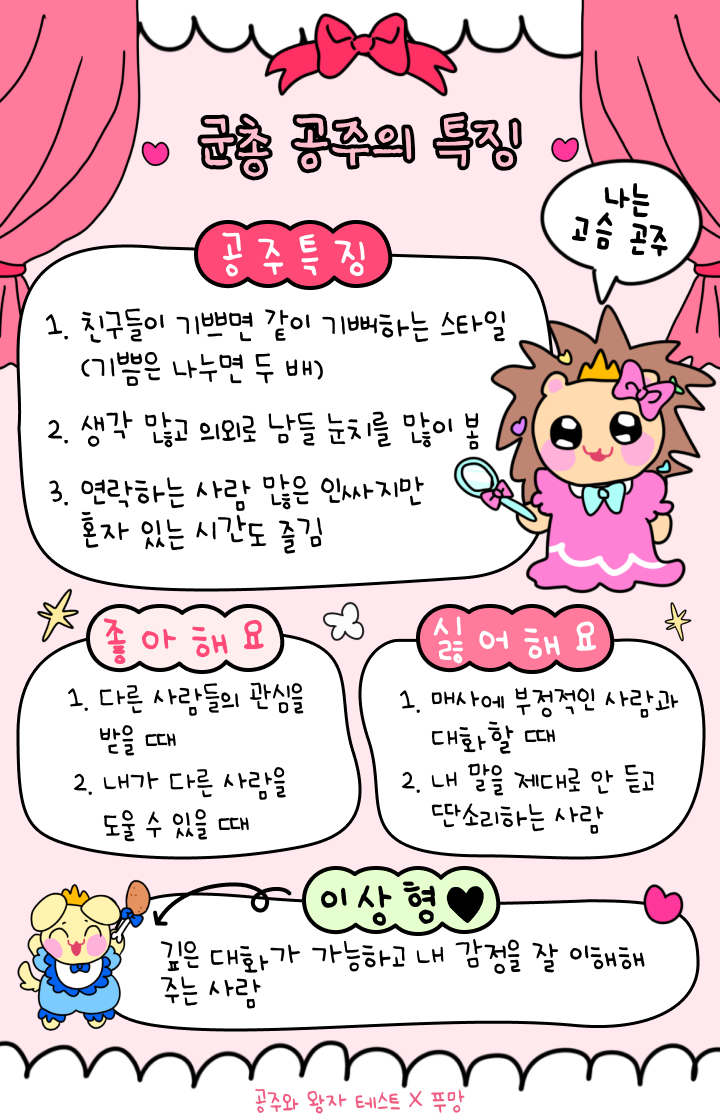 균총 공주의 특징
나는
고슴 곤주
공주특징
1. 친구들이 기쁘면 같이 기뻐하는 스타일
(기쁨은 나누면 두 배)
2. 생각 많고 의외로 남들 눈치를 많이 봄
3. 연락하는 사람 많은 인싸지만
혼자 있는 시간도 즐김
좋아해요
1. 다른 사람들의 관심을
받을 때
2. 내가 다른 사람을
도울 수 있을 때
싫어해요
1. 매사에 부정적인 사람과
대화할 때
2. 내 말을 제대로 안 듣고
딴소리하는 사람
이상형♥
깊은 대화가 가능하고 내 감정을 잘 이해해
주는 사람
공주와 왕자 테스트 X 푸망